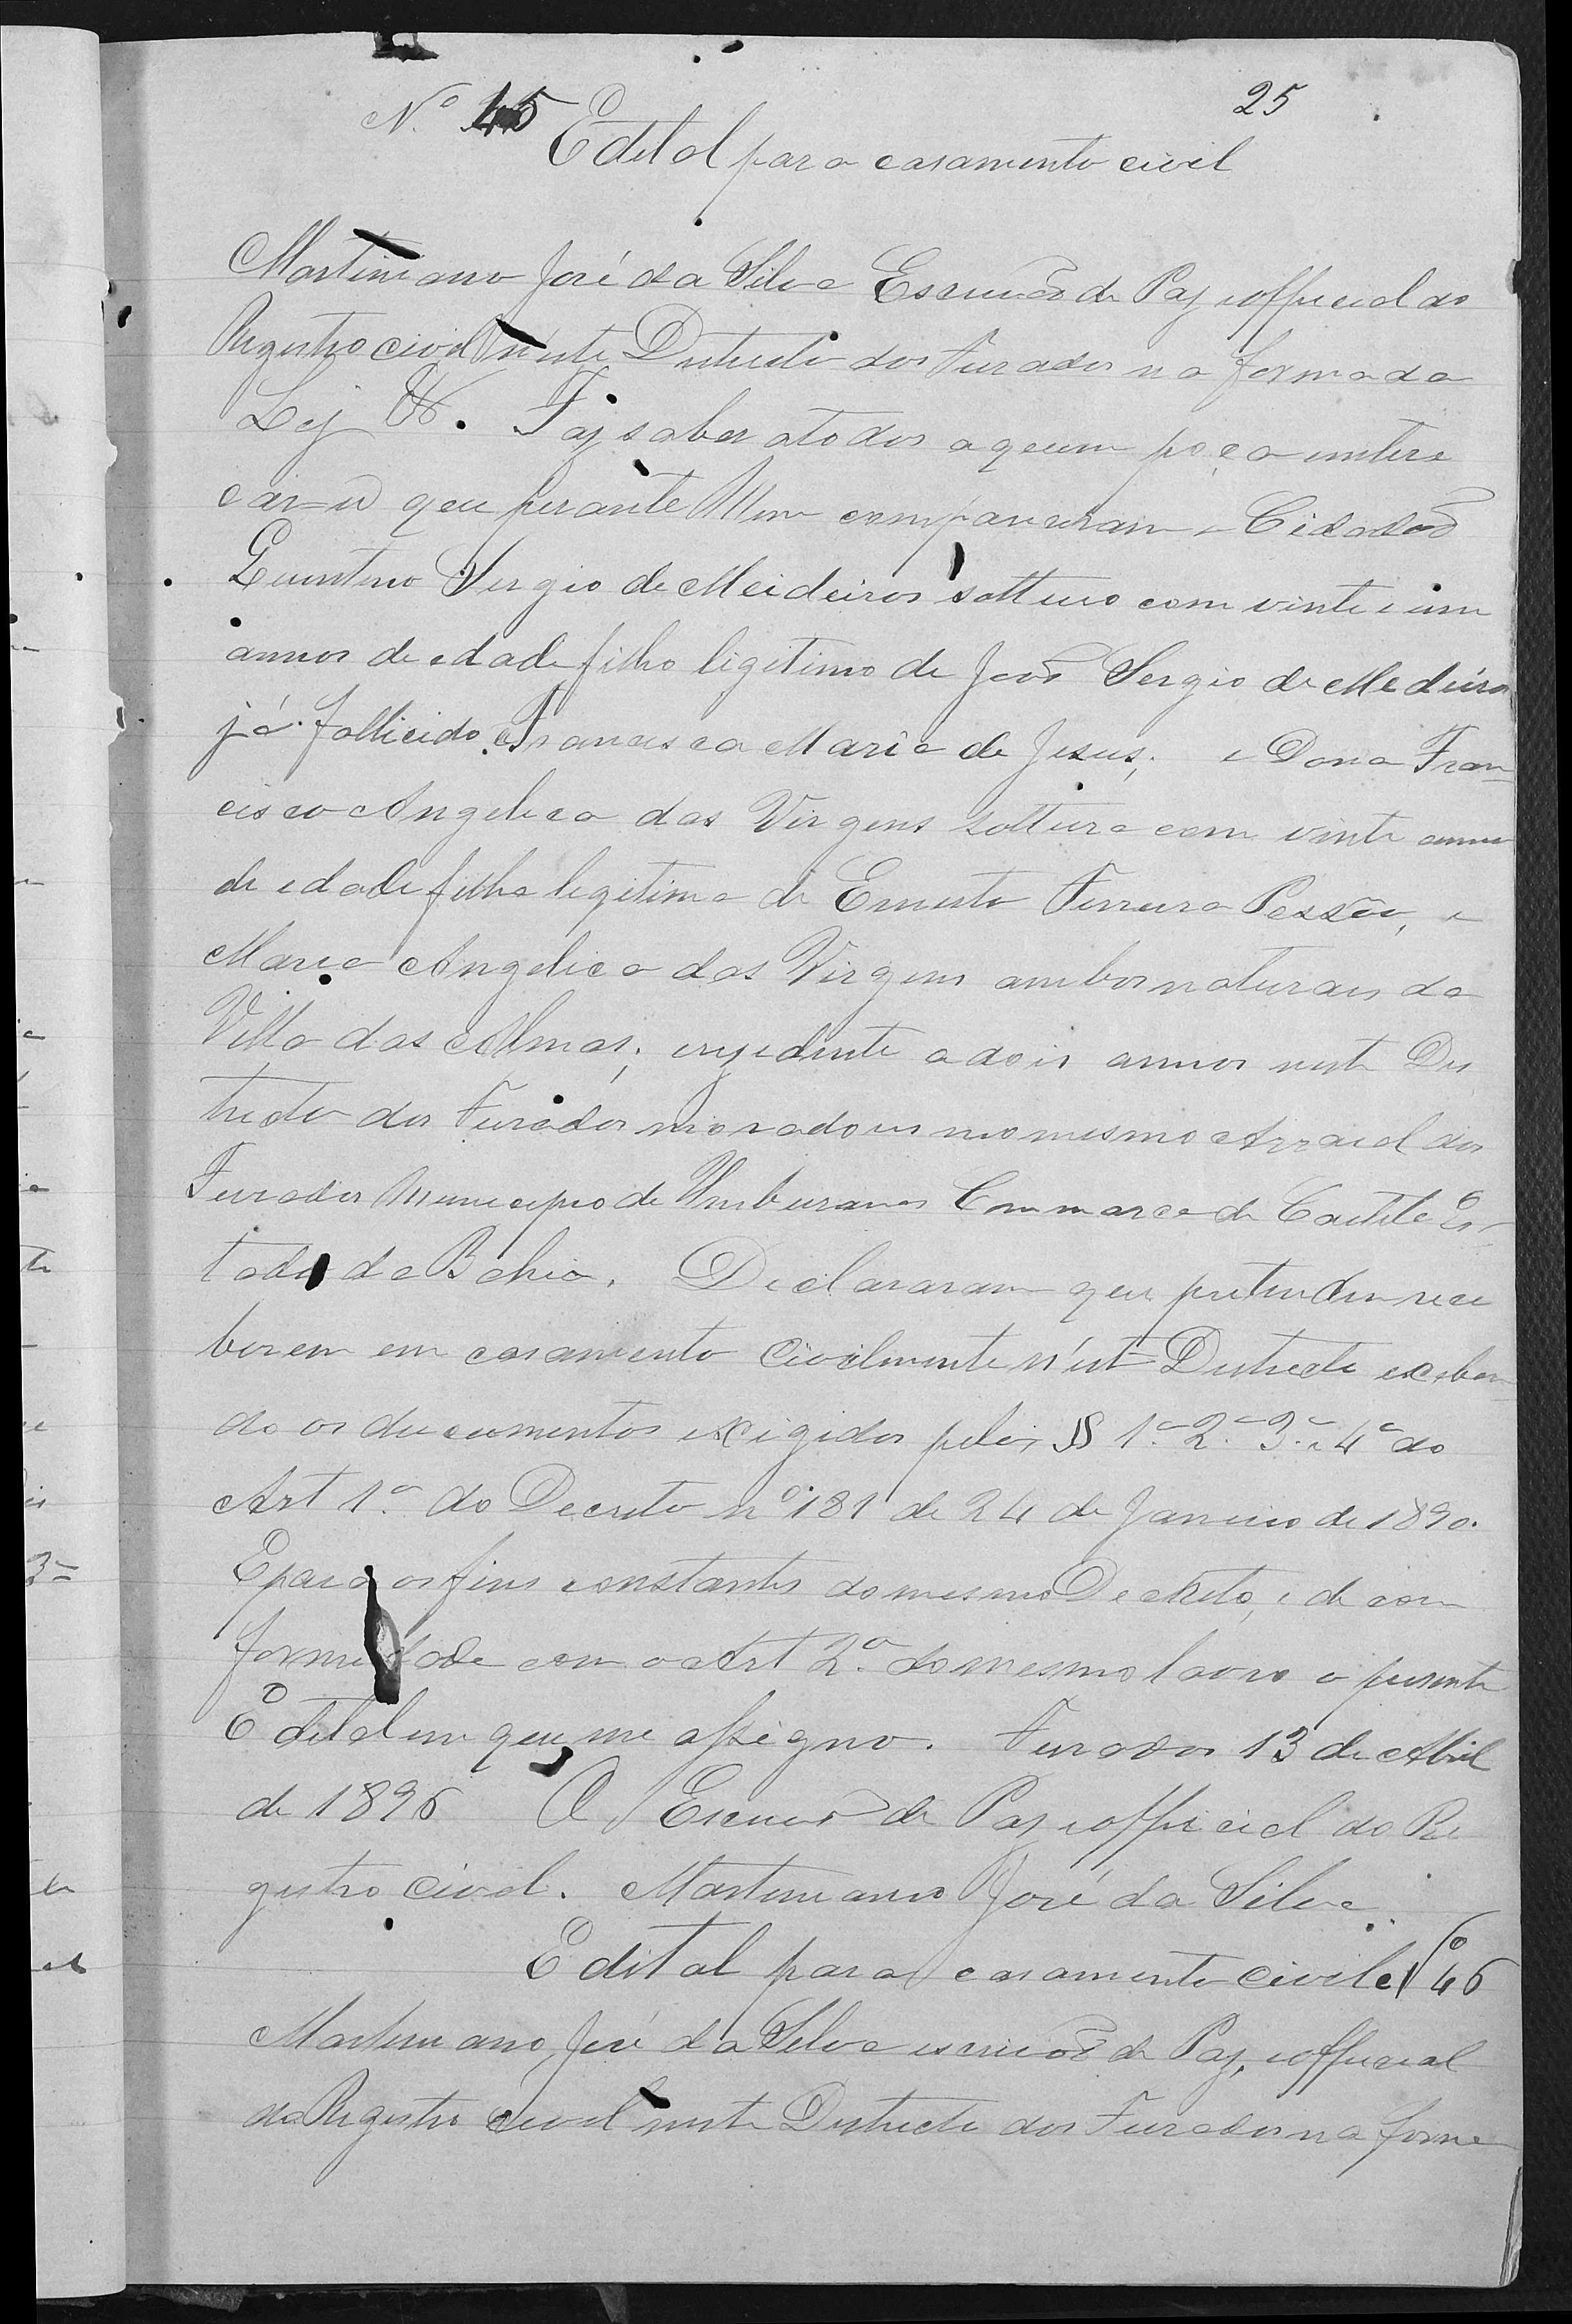 25
Nº 45
Edital para casamento civil
Martiniano José da Silva Escrivão de Paz e official do
Registro civil n'este Districto dos Furados na forma da
Ley &. Faz saber a todos a quem poça intere
çar-se que perante Mim compareceram o Cidadaõ
Quintino Sergio de Meideiros solteiro com vinte e um
annos de edade filho ligitimo de Joaõ Sergio de Medeiros
já fallicido e Francisca Maria de Jesus; e Dona Fran=
cisca Angelica das Virgens solteira com vinte annos
de edade filha legitima de Ernesto Ferreira Pessôa, e
Maria Angelica das Virgens ambos naturais da
Villa das Almas, e rezidente a dois annos neste Dis
tricto dos Furados moradores no mesmo Arraial dos
Furados Municipio de Umburanas Commarca de Caitite Es=
tado da Bahia. Declararam que pretendem rece
berem em casamento Civilmente n'este Districto exeben
do os ducumentos exigidos pelos §§ 1º 2º 3º e 4º do
Art 1º do Decreto nº 181 de 24 de Janeiro de 1890.
E para os fins constantes do mesmo Decreto, e de con
formidade com o Art 2º do mesmo lavro o presente
Edital em que me assigno. Furados 13 de Abril
de 1896 O Escrivão de Paz e official do Re
gistro Civil. Martiniano José da Silva
Edital para casamento Civil Nº 46
Martiniano José da Silva escrivaõ de Paz, e official
do Registro Civil neste Districto dos Furados na forma